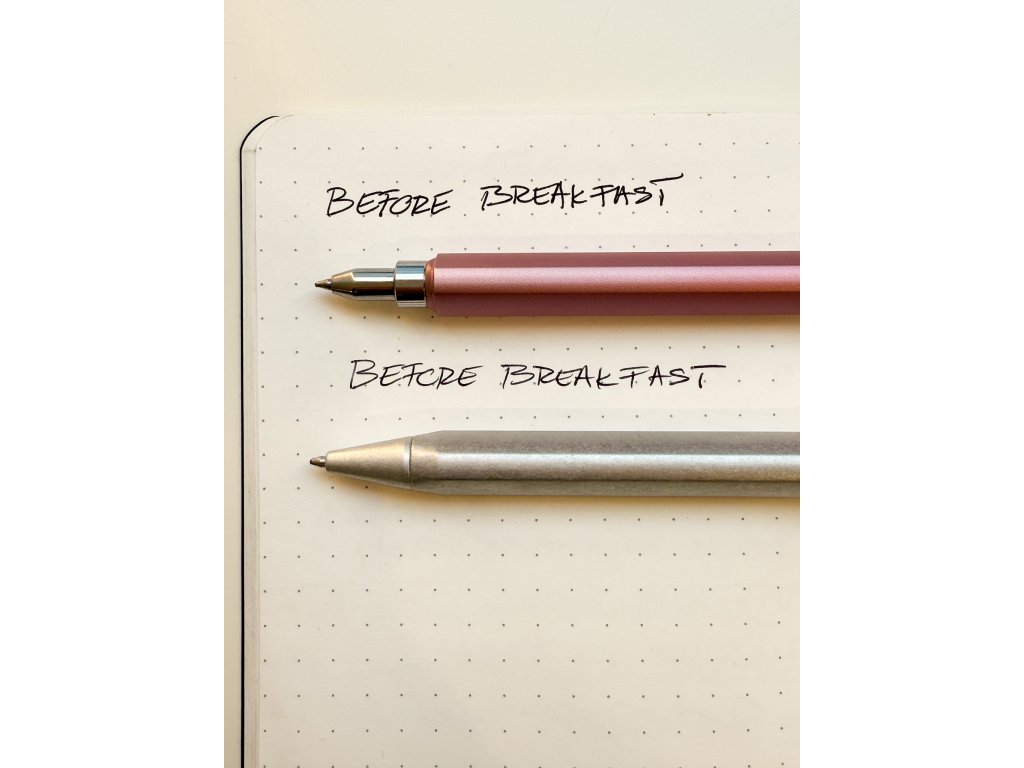 BEFORE BREAKFAST
BEFORE BREAKFAST